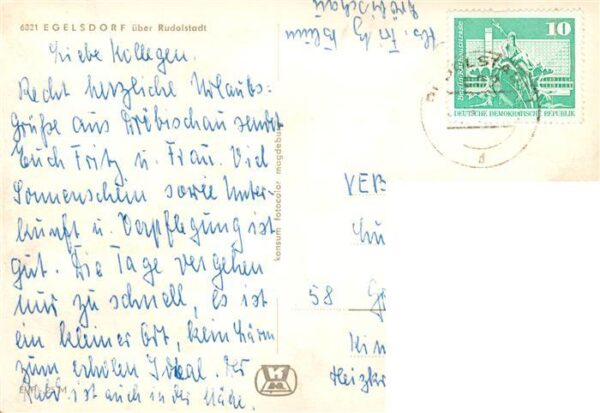 6821 EGELSDORF über Rudolstadt
Liebe Kollegen.
Recht herzliche Urlaubs-
grüße aus Dröbischau sendet
Euch Fritz u. Frau. Viel
Sonnenschein sowie Unter-
kunft u. Verpflegung ist
gut. Die Tage vergehen
nur zu schnell, es ist
ein kleiner Ort, kein Lärm
zum erholen Ideal. Der
Wald ist auch in der Nähe.
Fritz
Dröbischau
konsum fotocolor magdeburg
10
DEUTSCHE DEMOKRATISCHE REPUBLIK
VEB
58 G
Heizkr